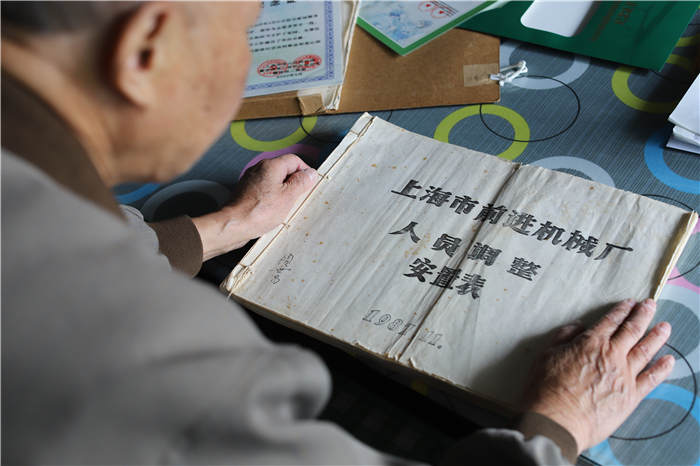 上海市前进机械厂
人员调整
安置表
1987.11.